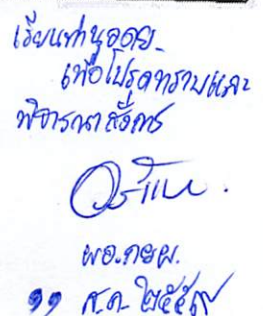 เรียนท่าน
เพื่อโปรดทราบและ
พิจารณาสั่งการ
ผอ.กยผ.
๑๑ ส.ค. ๒๕๕๘